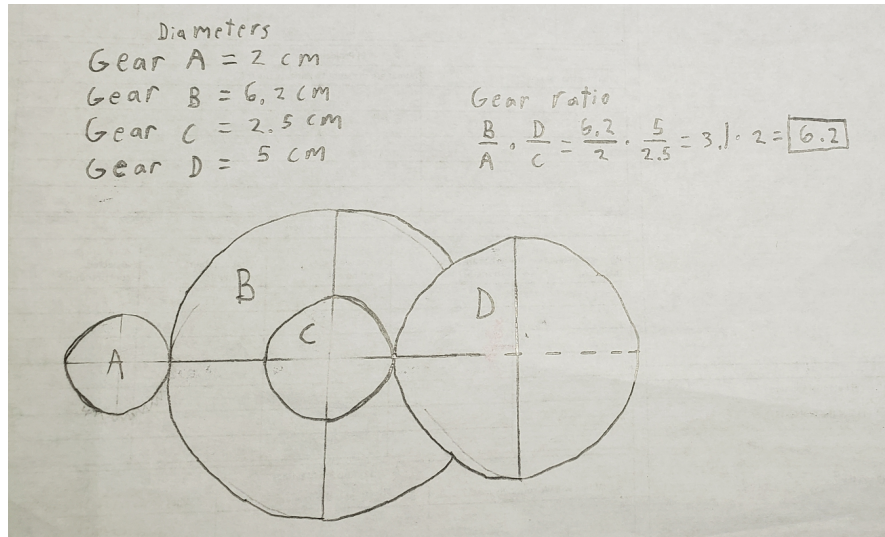 Diameters
Gear A = 2 cm
Gear B = 6.2 cm
Gear C = 2.5 cm
Gear D = 5 cm
Gear ratio
B/A · D/C = 6.2/2 · 5/2.5 = 3.1 · 2 = 6.2
B
C
D
A